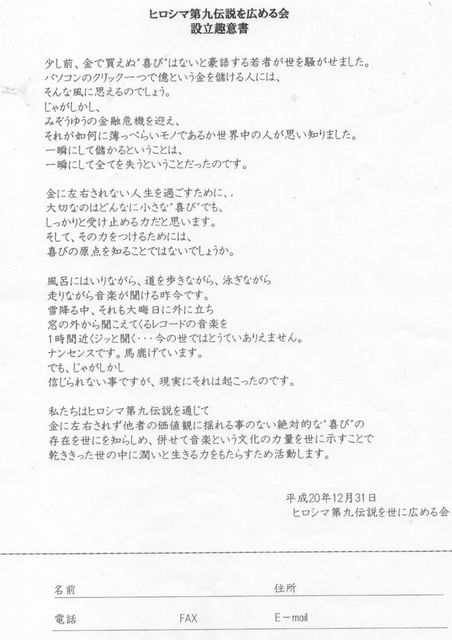 ヒロシマ第九伝説を広める会
設立趣意書
少し前、金で買えぬ“喜び”はないと豪語する若者が世を騒がせました。
パソコンのクリック一つで億という金を儲ける人には、
そんな風に思えるのでしょう。
じゃがしかし、
みぞうゆうの金融危機を迎え、
それが如何に薄っぺらいモノであるか世界中の人が思い知りました。
一瞬にして儲かるということは、
一瞬にして全てを失うということだったのです。
金に左右されない人生を過ごすために、。
大切なのはどんなに小さな“喜び”でも、
しっかりと受け止める力だと思います。
そして、その力をつけるためには、
喜びの原点を知ることではないでしょうか。
風呂にはいりながら、道を歩きながら、泳ぎながら
走りながら音楽が聞ける昨今です。
雪降る中、それも大晦日に外に立ち
窓の外から聞こえてくるレコードの音楽を
1時間近くジッと聞く・・・今の世ではとうていありえません。
ナンセンスです。馬鹿げています。
でも、じゃがしかし
信じられない事ですが、現実にそれは起こったのです。
私たちはヒロシマ第九伝説を通じて
金に左右されず他者の価値観に揺れる事のない絶対的な“喜び”の
存在を世に知らしめ、併せて音楽という文化の力量を世に示すことで
乾ききった世の中に潤いと生きる力をもたらすため活動します。
平成20年12月31日
ヒロシマ第九伝説を世に広める会
名前 住所
電話 FAX E－mail